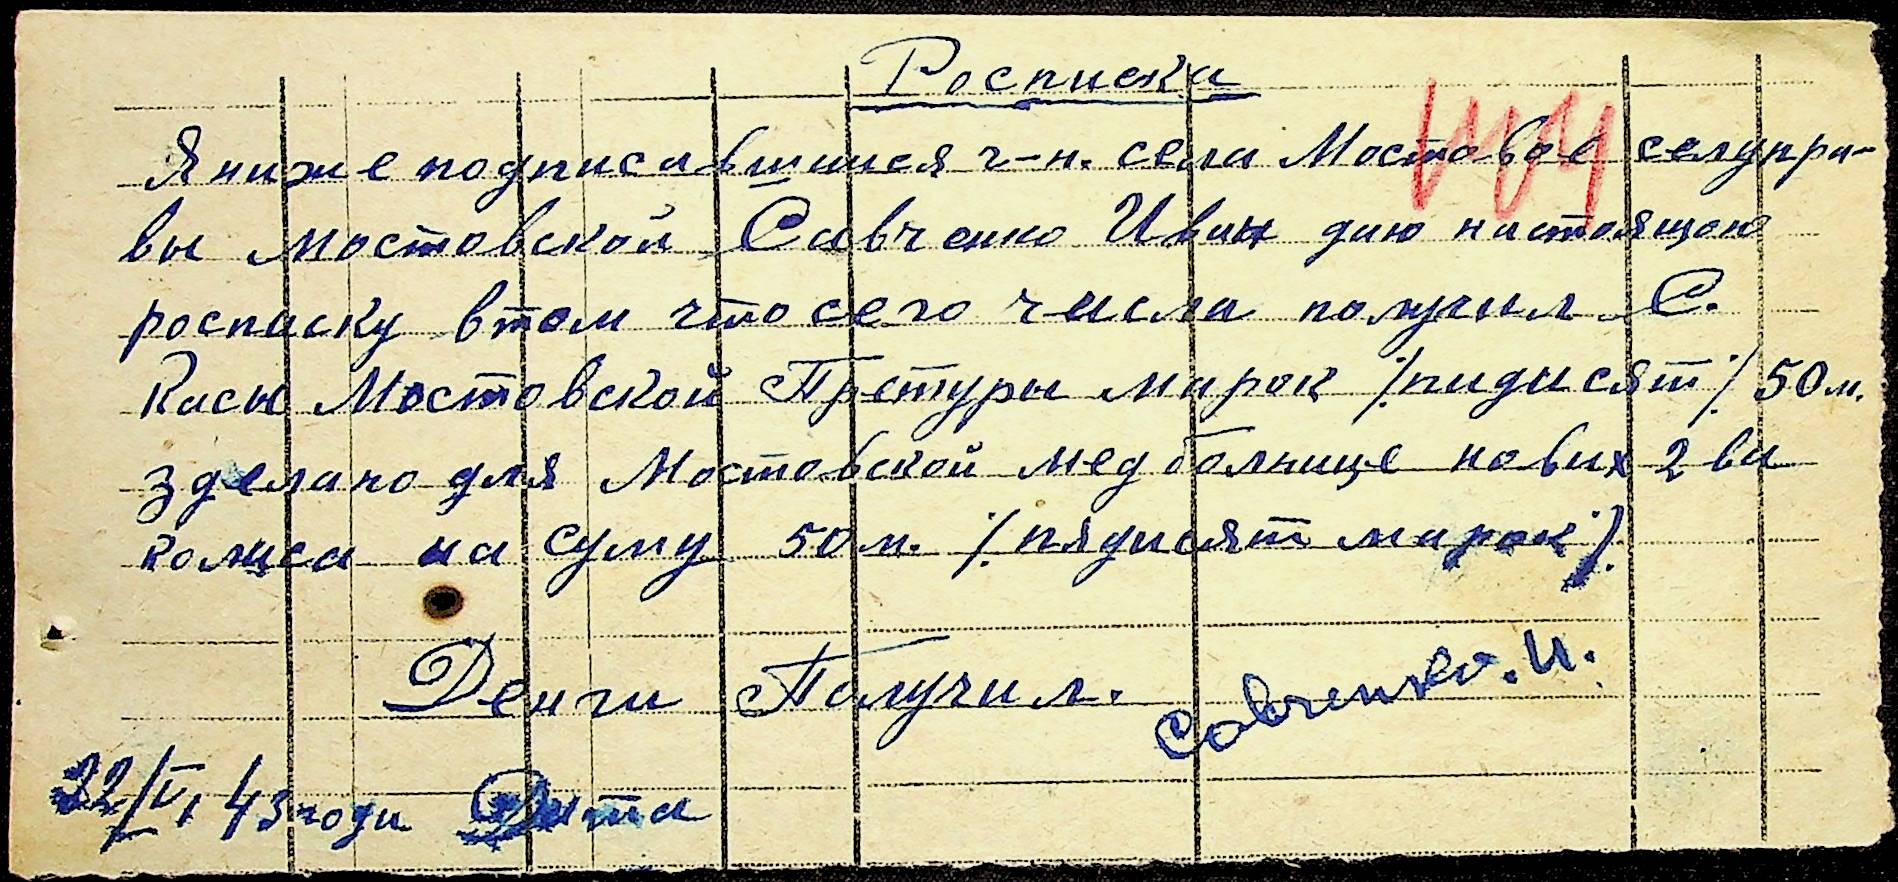 Росписка
Я ниже подписавшийся г-н. села Мостовое селупра-
вы Мостовской Савченко Иван даю настоящою
росписку втом что сего числа получил С.
Касы Мостовской Претуры марок /пидисят/ 50 м.
зделано для Мостовской медболнице нових 2ва
колиса на суму 50 м. /пядисят марок/.
Денги Получил. Савченко. И.
22/V, 43 года Дата